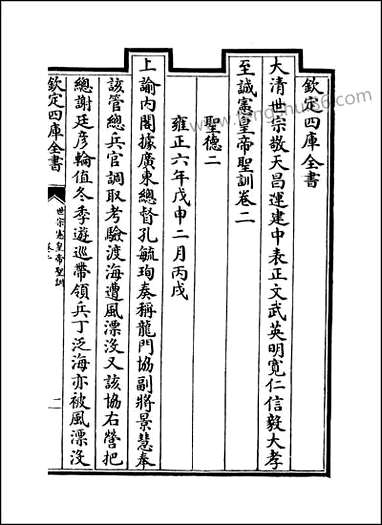 欽定四庫全書
大清世宗敬天昌運建中表正文武英明寬仁信毅大孝
至誠憲皇帝聖訓卷二
聖德二
雍正六年戊申二月丙戌
上諭內閣據廣東總督孔毓珣奏稱龍門協副將景慧奉
該管總兵官調取考驗渡海遭風漂沒又該協右營把
總謝廷彥輪值冬季遊巡帶領兵丁泛海亦被風漂沒
欽定四庫全書
世宗憲皇帝聖訓
卷二
一